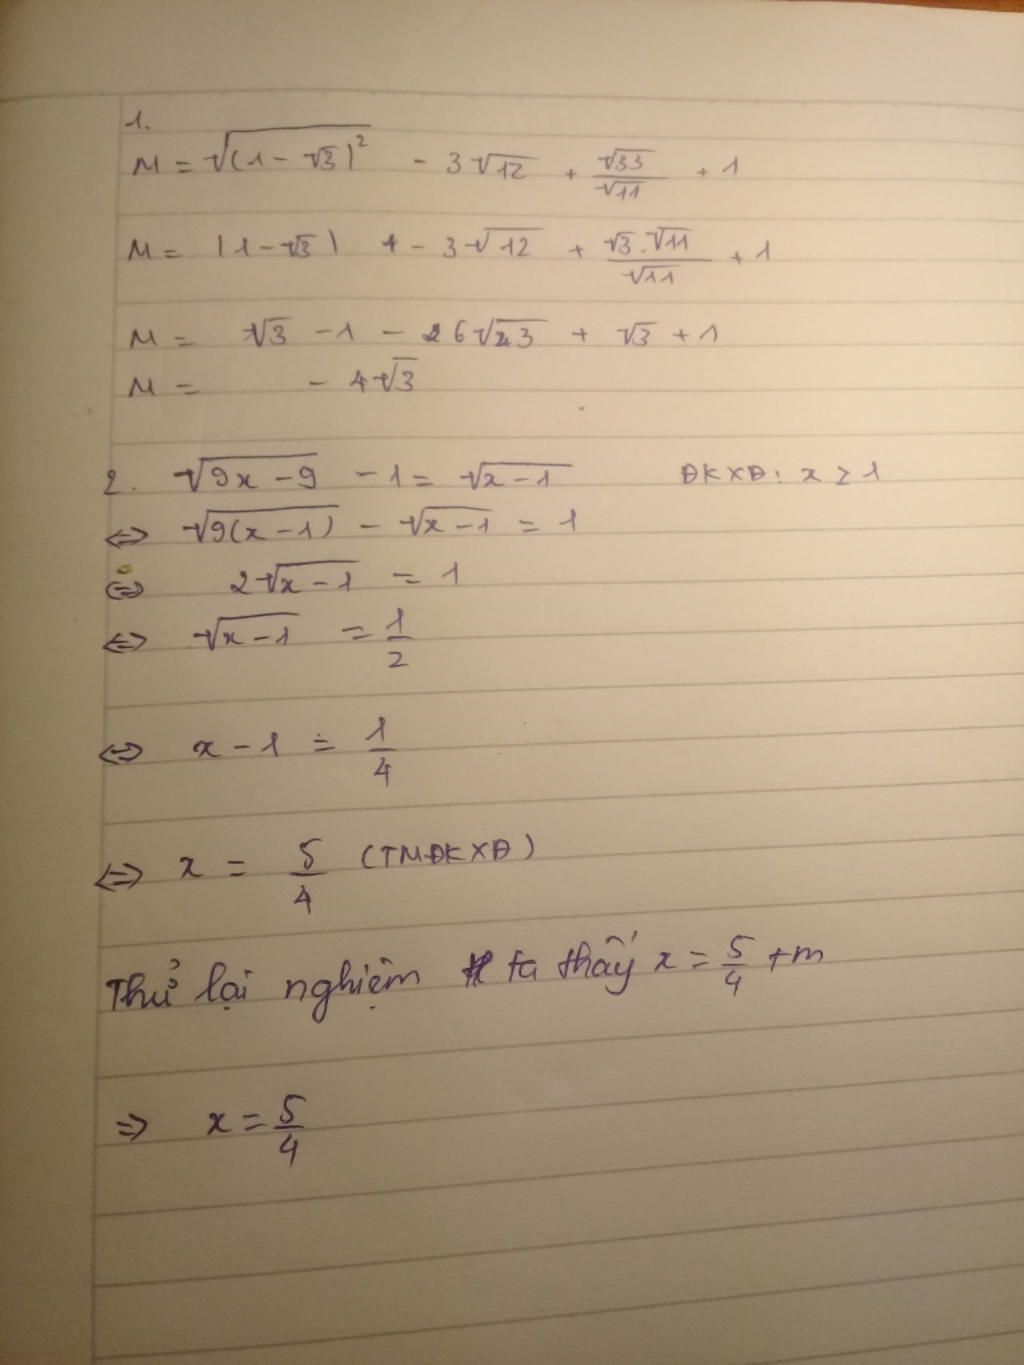 1.
M = √(1 - √3)² - 3√12 + √33/√11 + 1
M = |1 - √3| + - 3√12 + √3.√11/√11 + 1
M = √3 - 1 - 6√3 + √3 + 1
M = - 4√3
2. √9x - 9 - 1 = √x - 1 ĐKXĐ: x ≥ 1
⇔ √9(x - 1) - √x - 1 = 1
⇔ 2√x - 1 = 1
⇔ √x - 1 = 1/2
⇔ x - 1 = 1/4
⇔ x = 5/4 (TMĐKXĐ)
Thử lại nghiệm ta thấy x = 5/4 tm
⇒ x = 5/4